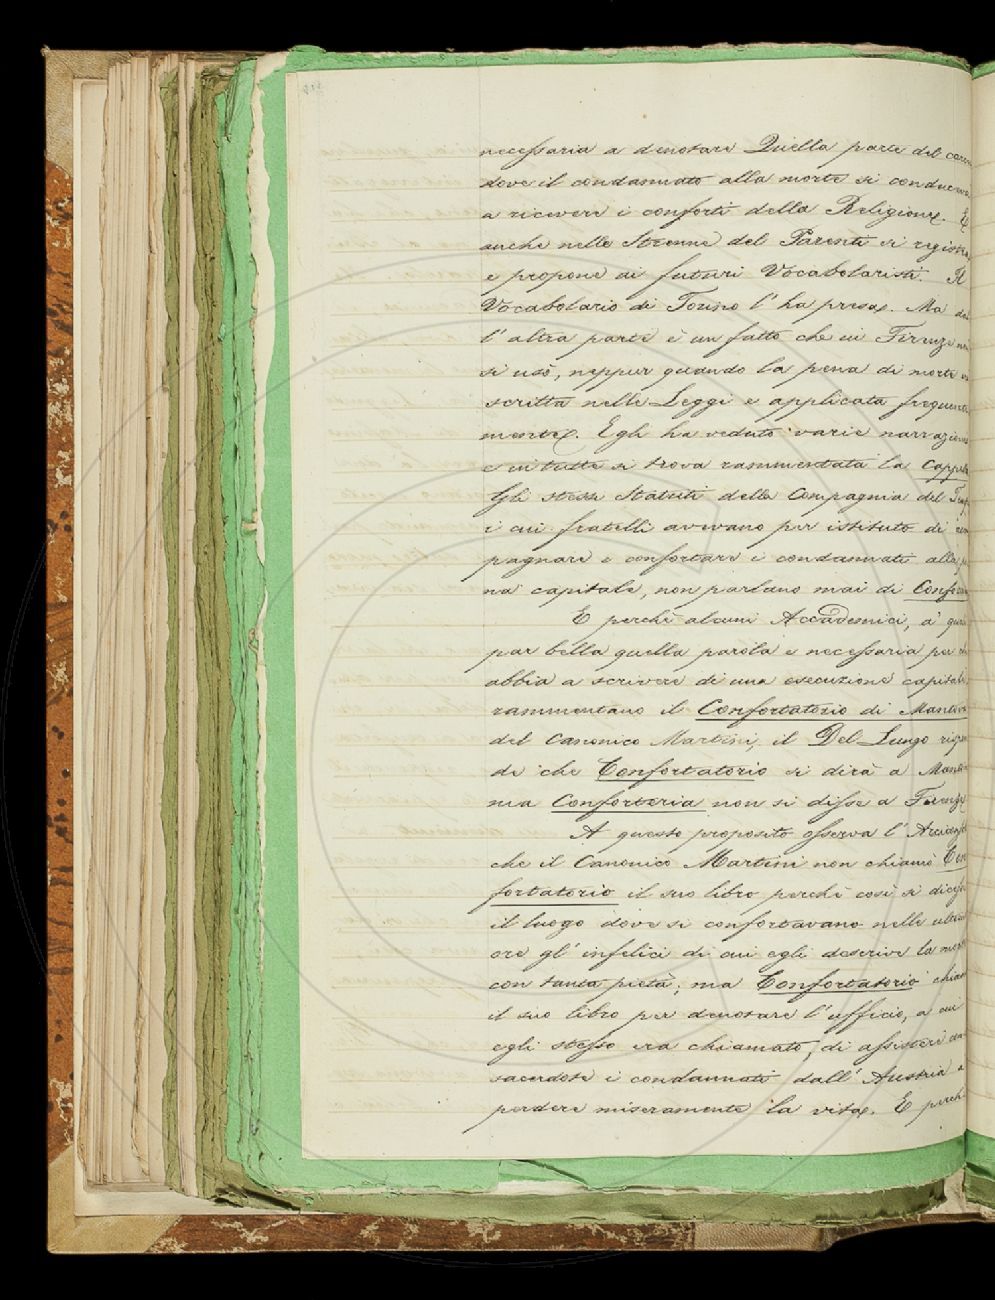 necessaria a denotare Quella parte del carce
dove il condannato alla morte si conduceva
a ricevere i conforti della Religione. E
anche nelle Strenne del Parenti si registra
e propone ai futuri Vocabolaristi. Il
Vocabolario di Torino l'ha preso. Ma dal
l'altra parte è un fatto che in Firenze non
si usò, neppur quando la pena di morte era
scritta nelle Leggi e applicata frequente
mente. Egli ha veduto varie narrazioni
e in tutte si trova rammentata la Cappella
Gli stessi Statuti della Compagnia del
i cui fratelli avevano per istituto di
pagnare e confortare i condannati alla pe
na capitale, non parlano mai di
E perchè alcuni Accademici, a' quali
par bella quella parola e necessaria per chi
abbia a scrivere di una esecuzione capitale,
rammentano il Confortatorio di Mantova
del Canonico Martini, il Del Lungo rispon
de che Confortatorio si dirà a Mantova
ma Conforteria non si disse a Firenze
A questo proposito osserva l'
che il Canonico Martini non chiamò Con
fortatorio il suo libro perchè così si dicesse
il luogo dove si confortavano nelle ultime
ore gl'infelici di cui egli descrive la morte
con tanta pietà; ma Confortatorio chiamò
il suo libro per denotare l'ufficio, a cui
egli stesso era chiamato, di assistere
sacerdote i condannati dall'Austria a
perdere miseramente la vita. E perchè